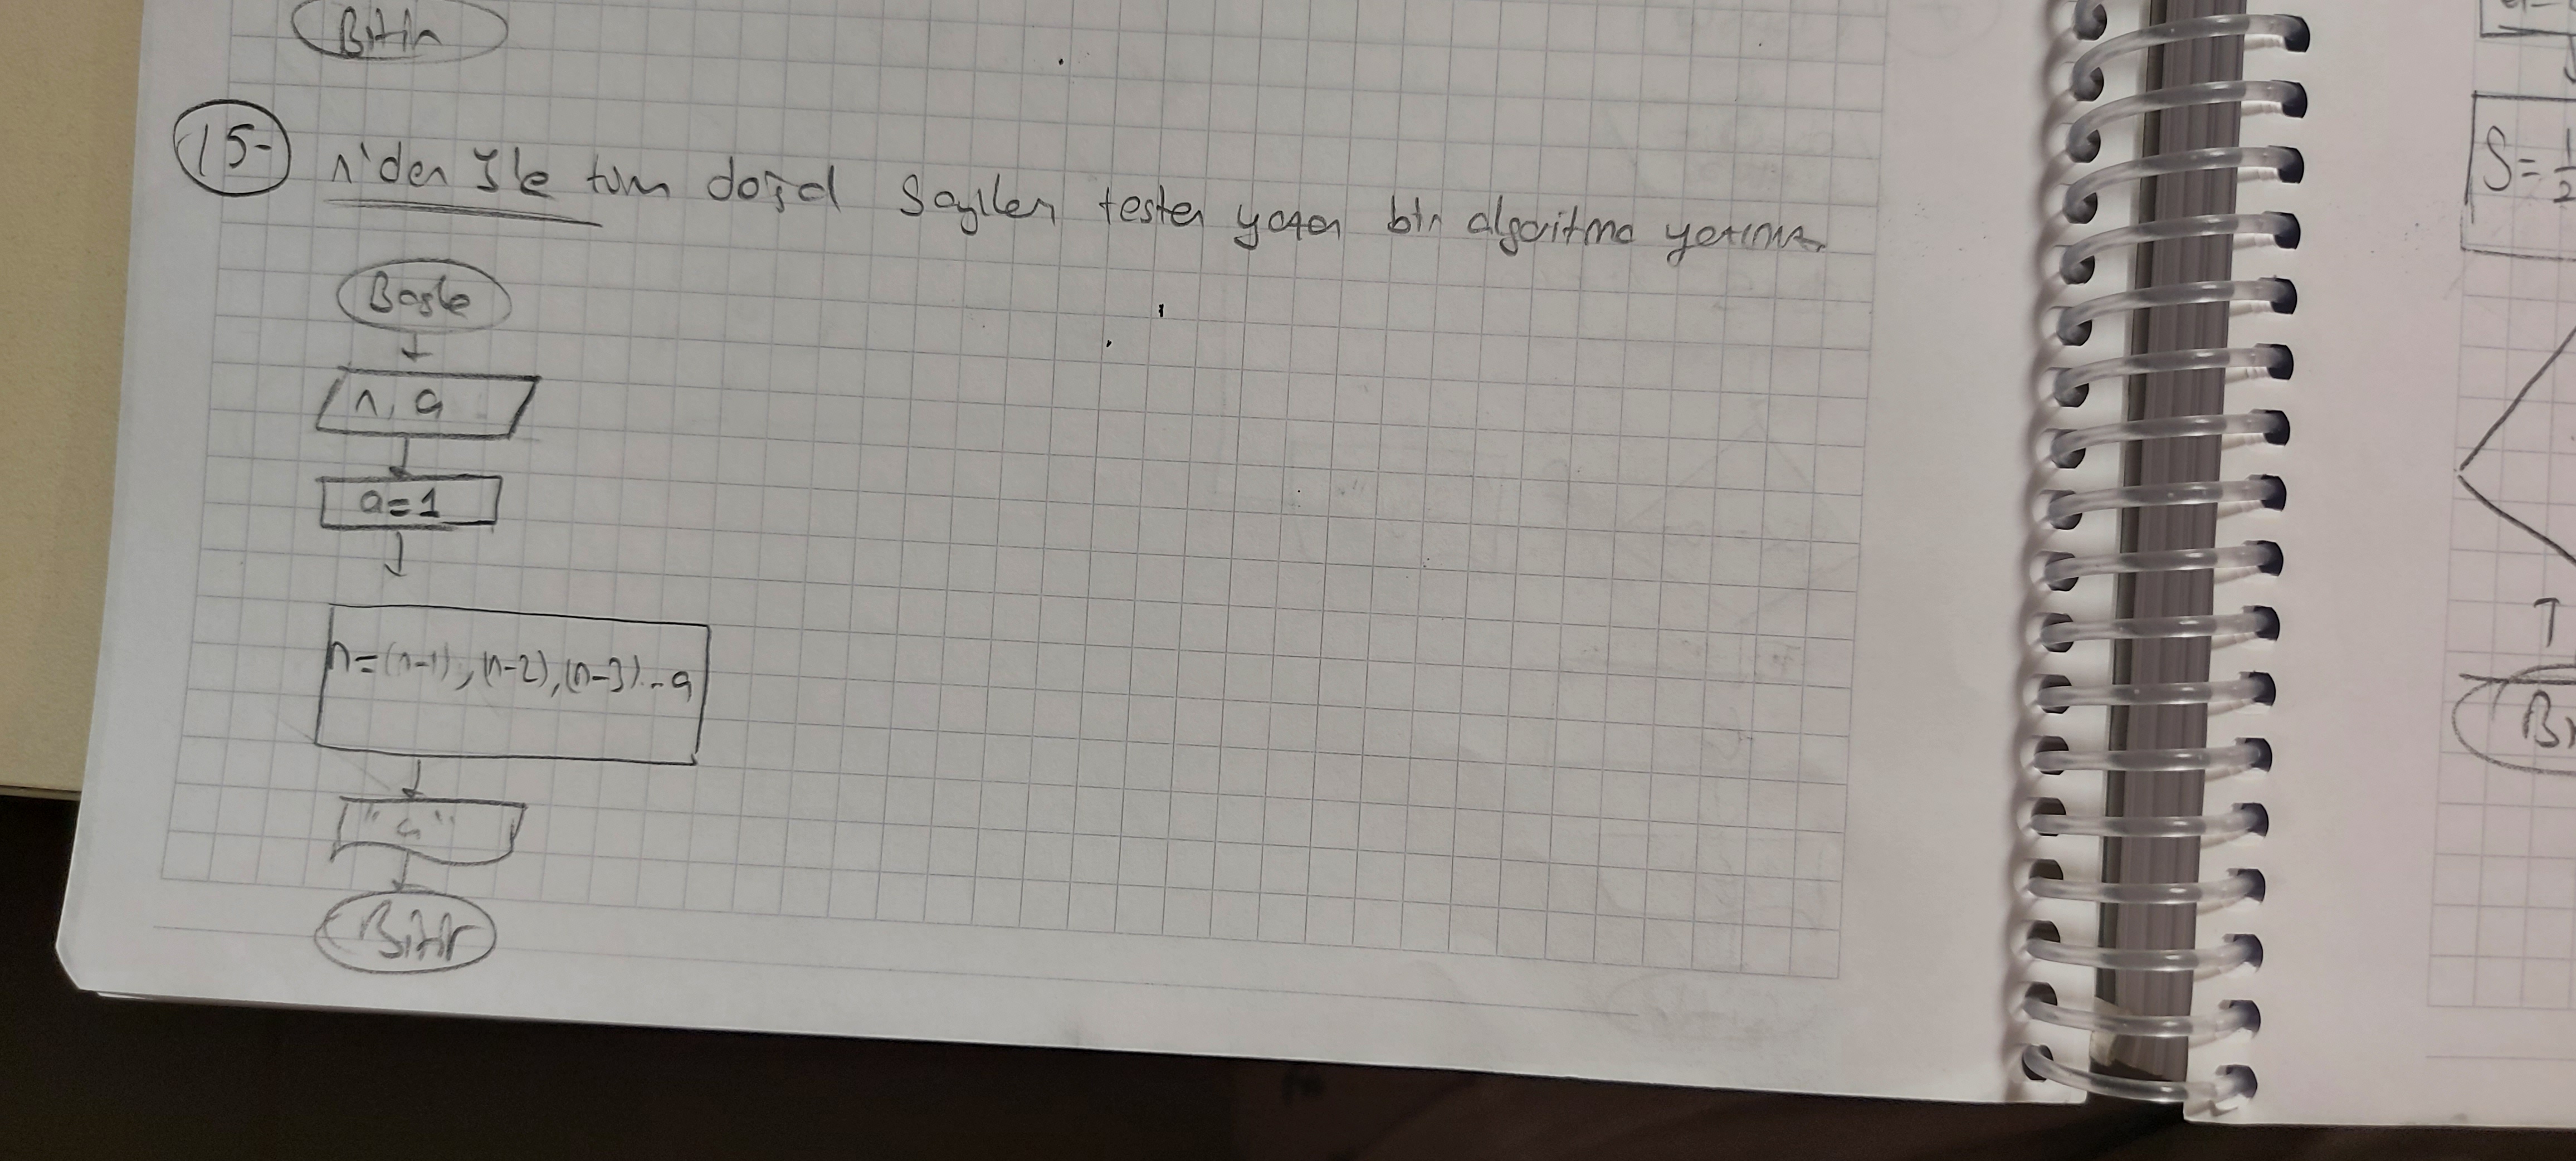 Bitir
15- n'den 1'e tüm doğal sayıları tersten yazan bir algoritma yazınız
Başla
n, a
a=1
n=(n-1),(n-2),(n-3)...a
"a"
Bitir
S=1/2